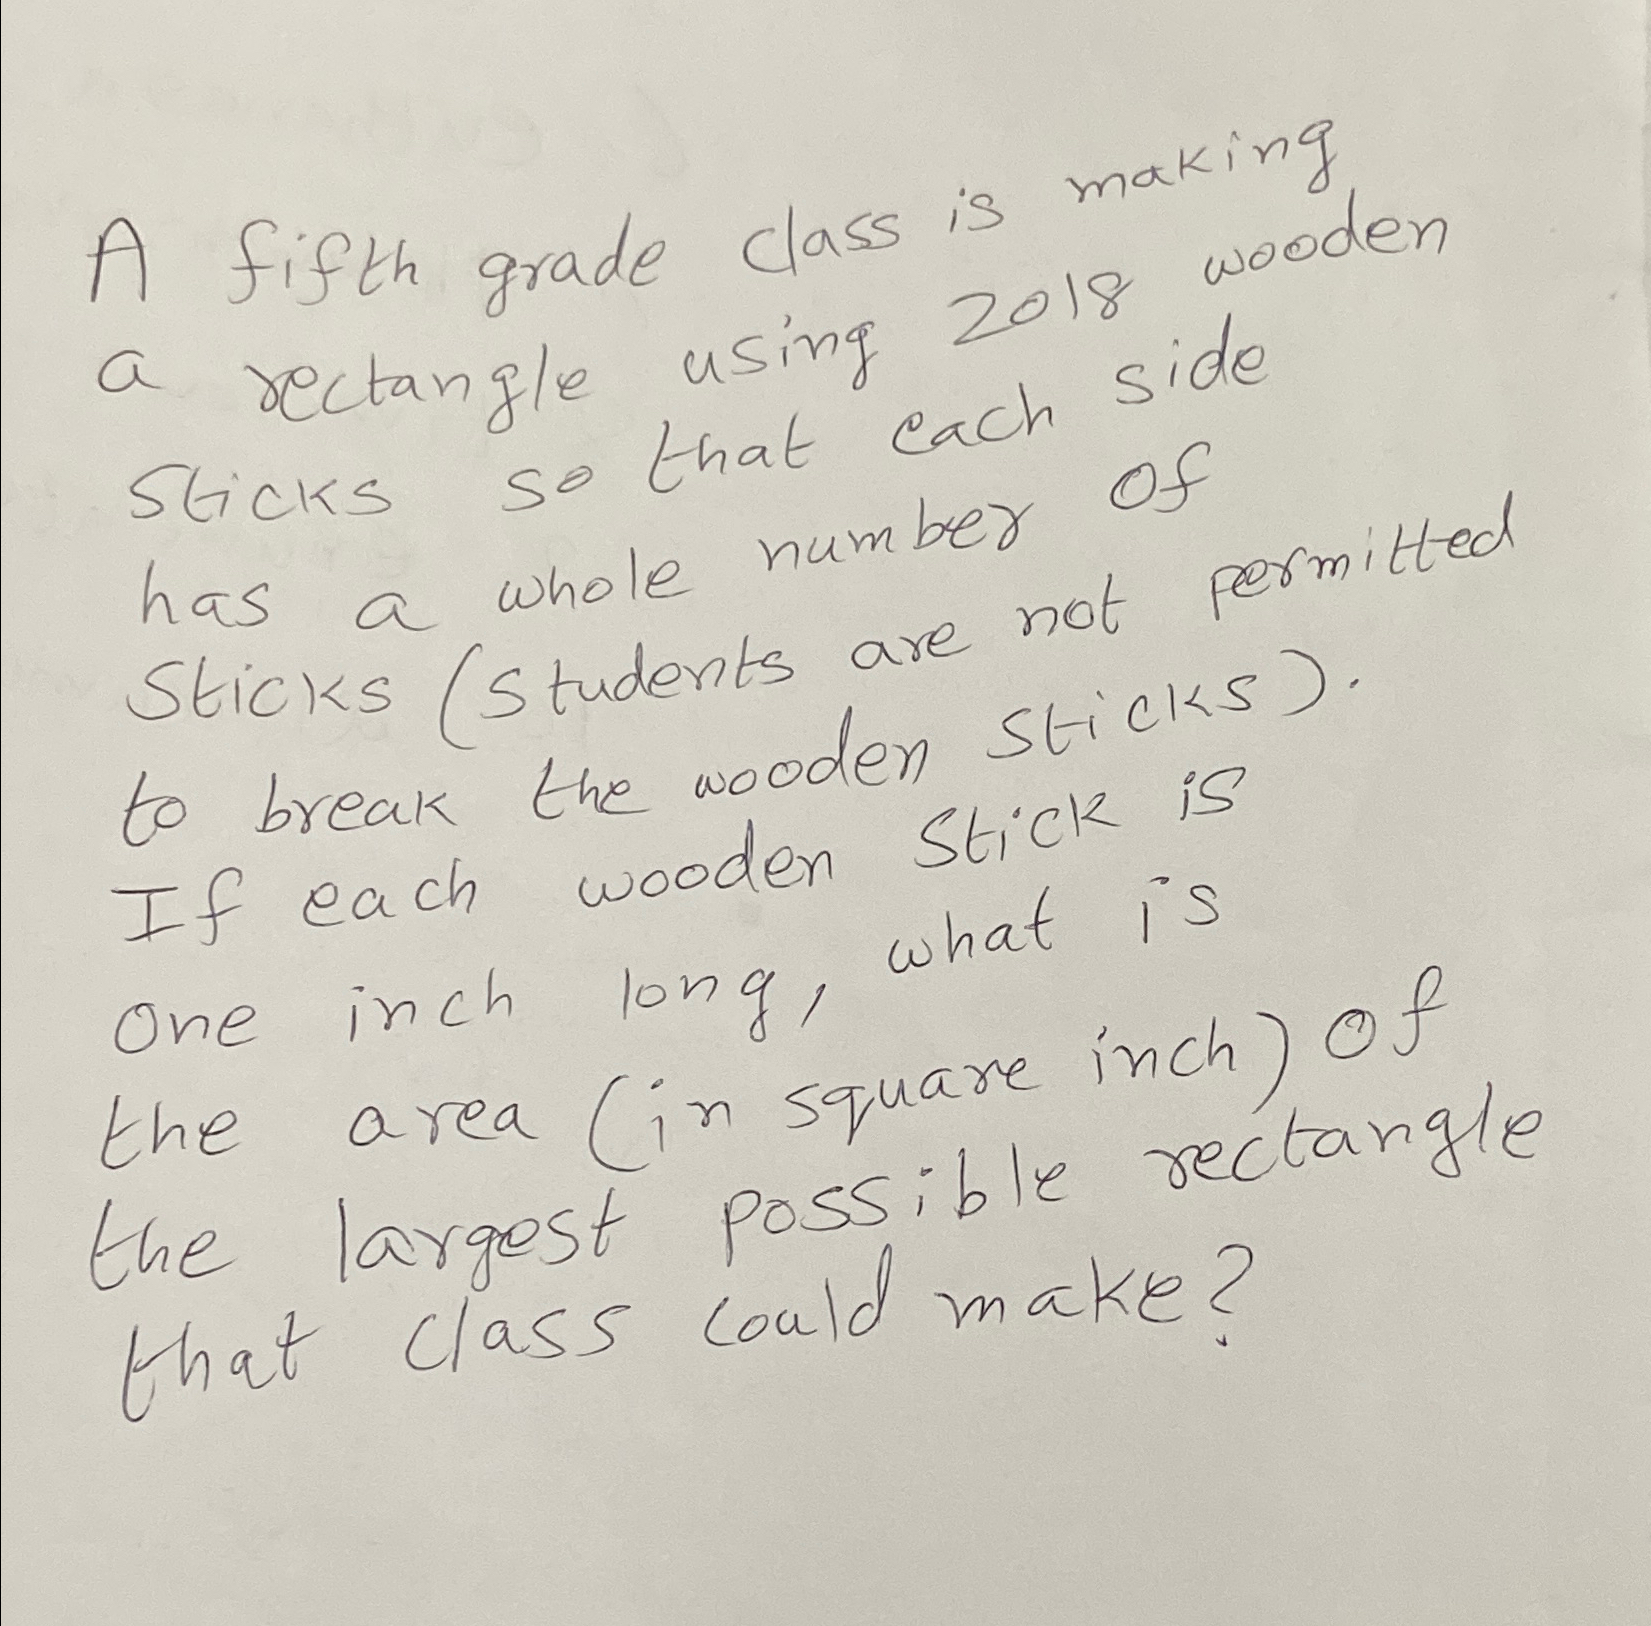 A fifth grade class is making
a rectangle using 2018 wooden
sticks so that each side
has a whole number of
sticks (students are not permitted
to break the wooden sticks).
If each wooden stick is
one inch long, what is
the area (in square inch) of
the largest possible rectangle
that class could make?